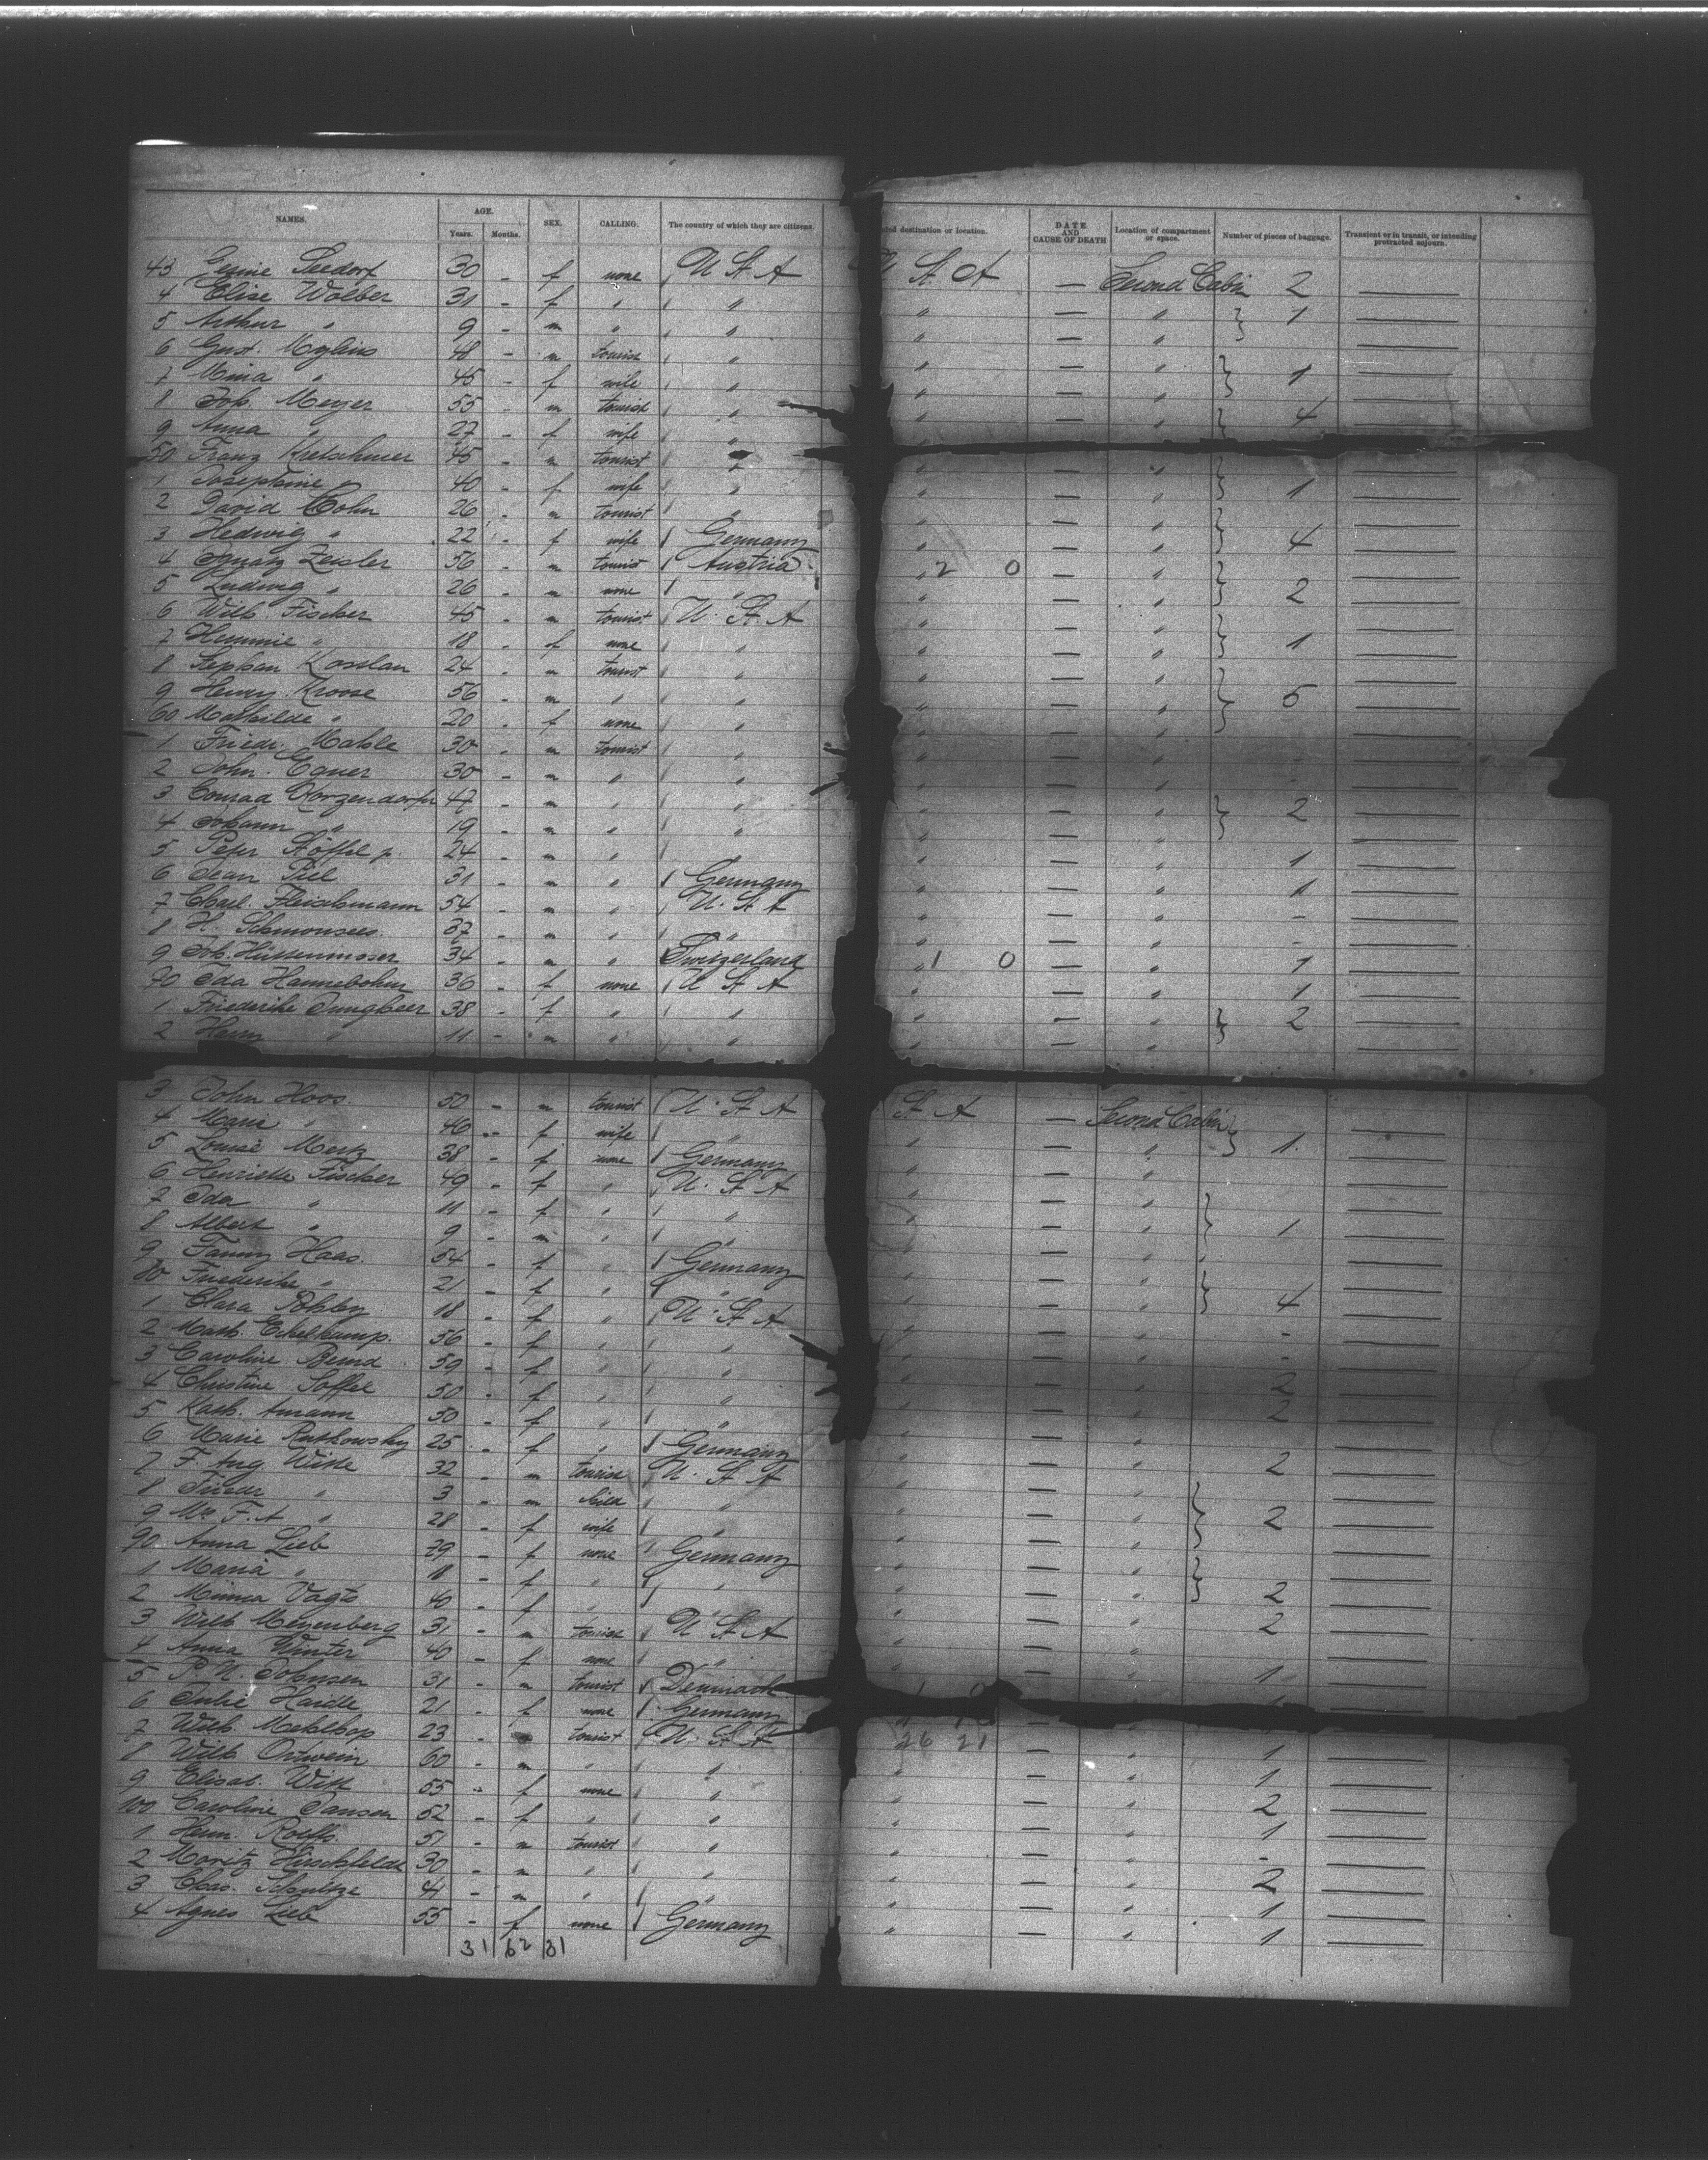 NAMES. AGE. Years. Months. SEX. CALLING. The country of which they are citizens. ded destination or location. DATE AND CAUSE OF DEATH Location of compartment or space. Number of pieces of baggage. Transient or in transit, or intending protracted sojourn.
43 Gesine Seedorf 30 - f none U St A U St. A — Second Cabin 2 —
4 Elise Wolber 31 - f " " " — " 1 —
5 Arthur " 9 - m " " " — " —
6 Gust. Mylius 48 - m tourist " " — " —
7 Mina " 45 - f wife " " — " 1 —
8 Joh. Meyer 55 - m tourist " " — " 4 —
9 Anna " 27 - f wife "
50 Franz Kretschmer 45 - m tourist " " — " —
1 Josephine " 40 - f wife " " — " 1 —
2 David Cohn 26 - m tourist " " — " —
3 Hedwig " 22 - f wife Germany " — " 4 —
4 Ignatz Zeisler 56 - m tourist Austria " 2 0 — " —
5 Ludwig " 26 - m none " " — " 2 —
6 Wilh. Fischer 45 - m tourist U. St. A " — " —
7 " 18 - f none " " — " 1 —
8 Stephan Kosslan 24 - m tourist " " — " —
9 Henry Kroose 56 - m " " " — " 5 —
60 Mathilde " 20 - f none " " — " —
1 Friedr. 30 - m tourist " " — " —
2 John. 30 - m " " " — " - —
3 Conrad 47 - m " " " — " 2 —
4 Johann " 19 - m " " " — " —
5 Peter 24 - m " " " — " 1 —
6 Jean 31 - m " Germany " — " 1 —
7 Fleischmann 54 - m " U. St A " — " - —
8 H. Schmonsees. 37 - m " " " — " - —
9 Joh. 34 - m " Switzerland " 1 0 — " 1 —
70 Ida Hannebohm 36 - f none U St A " — " 1 —
1 Friederike 38 - f " " " — " 2 —
2 Harry " 11 - m " " " — " —
3 John Hoos. 50 - m tourist U. St A St A — Second Cabin —
4 Marie " 46 - f wife " " — " 1. —
5 Louise Mertz 38 - f none Germany " — " —
6 Henriette Fischer 49 - f " U. St A " — " —
7 Ida " 11 - f " " " — " 1 —
8 Albert " 9 - m " " " — " —
9 Fanny Haas. 54 - f " Germany " — " —
80 Friederike " 21 - f " " " — " 4 —
1 Clara 18 - f " U. St A " — " - —
2 Math. Echelkamp. 56 - f " " " — " - —
3 Caroline 59 - f " " " — " 2 —
4 Christine 50 - f " " " — " 2 —
5 Kath. Amann 50 - f " " " — " —
6 Marie Rutkowsky 25 - f " Germany " — " 2 —
7 F. Aug 32 - m tourist U. St A " — " —
8 " 3 - m " " — " 2 —
9 F. A " 28 - f wife " " — " —
90 Anna Lieb f none Germany " — " —
1 Maria " 18 - f " " " — " 2 —
2 Minna Vagts 40 - f " " " — " 2 —
3 Wilh Meyenberg 31 - m tourist U St A " — " —
4 Anna Winter 40 - f none " " — " 1 —
5 31 - m tourist Denmark
6 Julie 21 - f none Germany
7 Wilh. Mehlhop 23 - tourist U. St A 26 21 — " 1 —
8 Wilh 60 - m " " " — " 1 —
9 Elisab. Witt 55 - f none " " — " 2 —
100 Caroline Jansen 52 - f " " " — " 1 —
1 Heinr. Rolffs. 51 - m tourist " " — " - —
2 Moritz Hirschfeldt 30 - m " " " — " 2 —
3 Chas. Schultze 41 - m " " " — " 1 —
4 Agnes Lieb 55 - f none Germany " — " 1 —
31 62 31